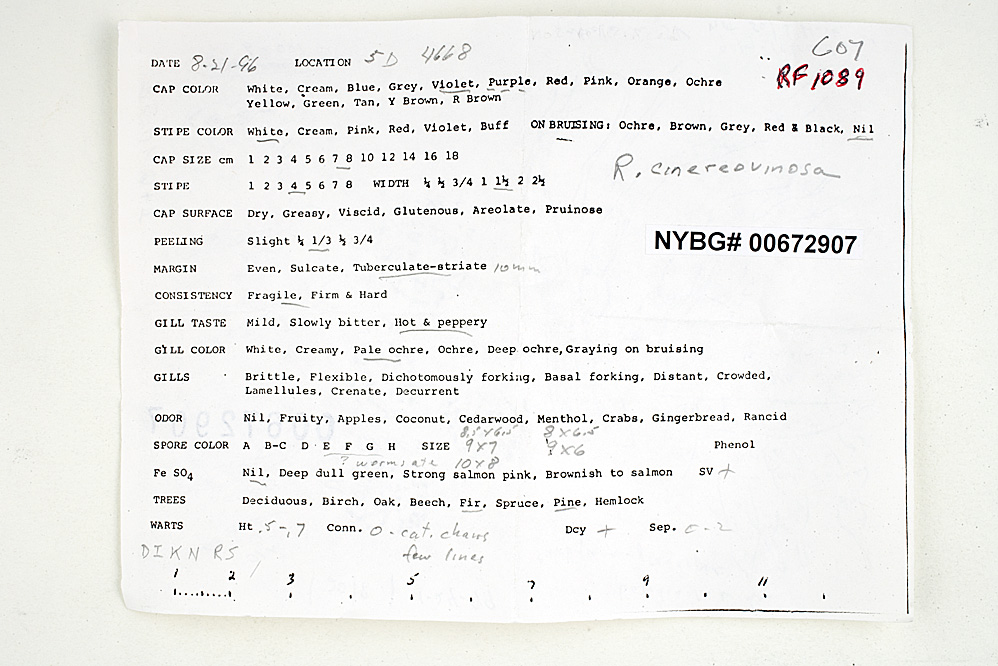 607
DATE 8-21-96 LOCATION 5D 4668
RF1089
CAP COLOR White, Cream, Blue, Grey, Violet, Purple, Red, Pink, Orange, Ochre
Yellow, Green, Tan, Y Brown, R Brown
STIPE COLOR White, Cream, Pink, Red, Violet, Buff ON BRUISING: Ochre, Brown, Grey, Red & Black, Nil
CAP SIZE cm 1 2 3 4 5 6 7 8 10 12 14 16 18
R. cinereovinosa
STIPE 1 2 3 4 5 6 7 8 WIDTH ¼ ½ 3/4 1 1½ 2 2½
CAP SURFACE Dry, Greasy, Viscid, Glutenous, Areolate, Pruinose
PEELING Slight ¼ 1/3 ½ 3/4
NYBG# 00672907
MARGIN Even, Sulcate, Tuberculate-striate 10mm
CONSISTENCY Fragile, Firm & Hard
GILL TASTE Mild, Slowly bitter, Hot & peppery
GILL COLOR White, Creamy, Pale ochre, Ochre, Deep ochre, Graying on bruising
GILLS Brittle, Flexible, Dichotomously forking, Basal forking, Distant, Crowded,
Lamellules, Crenate, Decurrent
ODOR Nil, Fruity, Apples, Coconut, Cedarwood, Menthol, Crabs, Gingerbread, Rancid
8.5x6.5 8x6.5
SPORE COLOR A B-C D E F G H SIZE 9x7 9x6 Phenol
? worms ate 10x8
Fe SO4 Nil, Deep dull green, Strong salmon pink, Brownish to salmon SV +
TREES Deciduous, Birch, Oak, Beech, Fir, Spruce, Pine, Hemlock
WARTS Ht .5-.7 Conn. 0-cat. chains Dcy + Sep. 0-2
few lines
DIKN RS
1 2 3 5 7 9 11